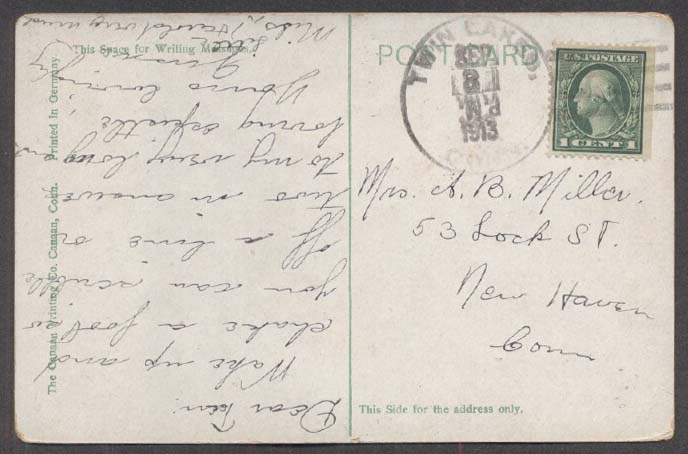 This Space for Writing Messages
Dear
Wake up and
shake a foot so
you can scribble
off a line or
two in answer
to my very long and
loving epistle
Yours lovingly
Harold very much
The Canaan Printing Co. Canaan, Conn. Printed in Germany
POST CARD
TWIN LAKES,
SEP
8
1913
CONN.
U.S. POSTAGE
1 CENT 1
Mrs. A. B. Miller.
53 Lock St.
New Haven
Conn
This Side for the address only.